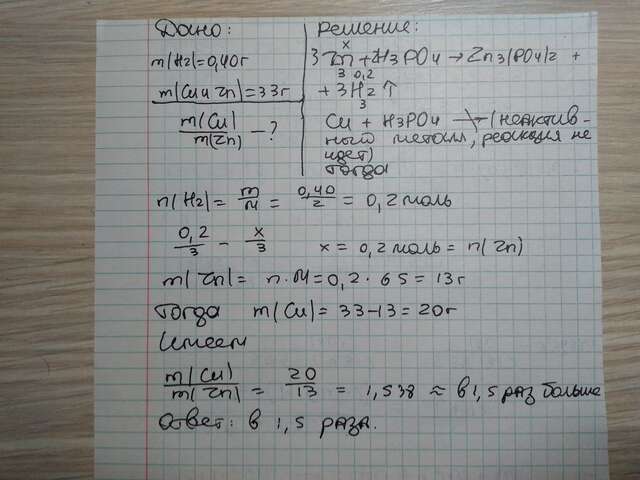 Дано:
m(H2)=0,40г
m(Cu и Zn)=33г
m(Cu)/m(Zn) - ?
Решение:
x
3Zn+2H3PO4→Zn3(PO4)2 +
3 0,2
+3H2↑
3
Cu + H3PO4 ↛ (неактив-
ного металл, реакция не
идет)
Тогда
n(H2)= m/M = 0,40/2 = 0,2 моль
0,2/3 - x/3 x = 0,2 моль = n(Zn)
m(Zn)= n·M=0,2·65=13г
Тогда m(Cu)=33-13=20г
Имеем
m(Cu)/m(Zn) = 20/13 = 1,538 ≈ в 1,5 раз больше
Ответ: в 1,5 раза.